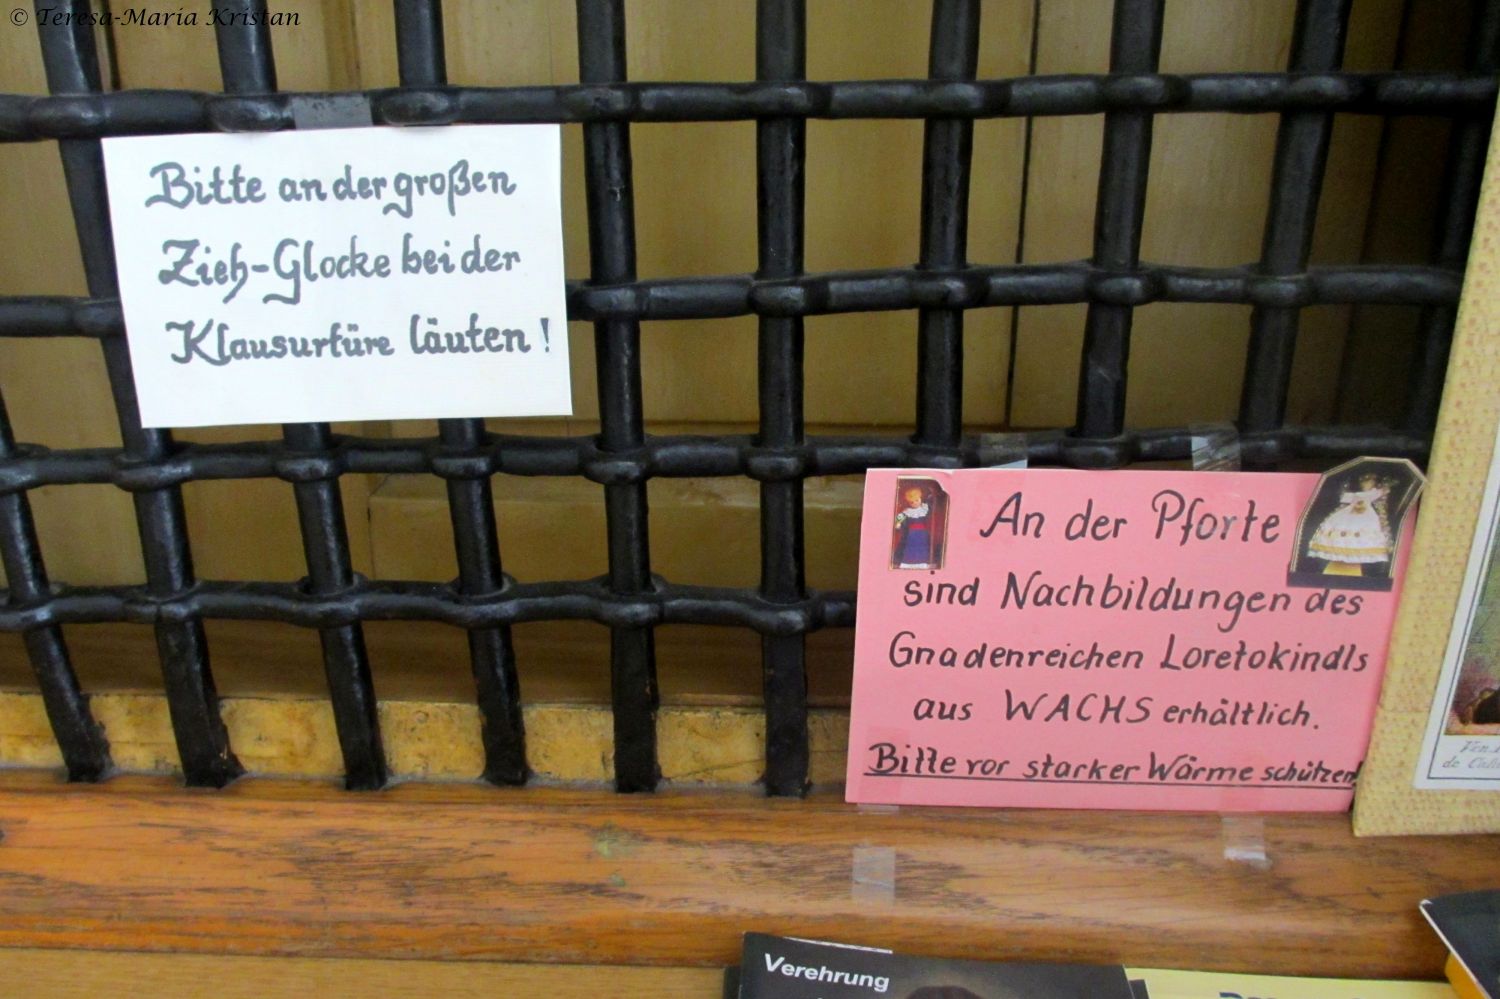 © Teresa-Maria Kristan
Bitte an der großen
Zieh-Glocke bei der
Klausurtüre läuten!
An der Pforte
sind Nachbildungen des
Gnadenreichen Loretokindls
aus WACHS erhältlich.
Bitte vor starker Wärme schützen!
Verehrung